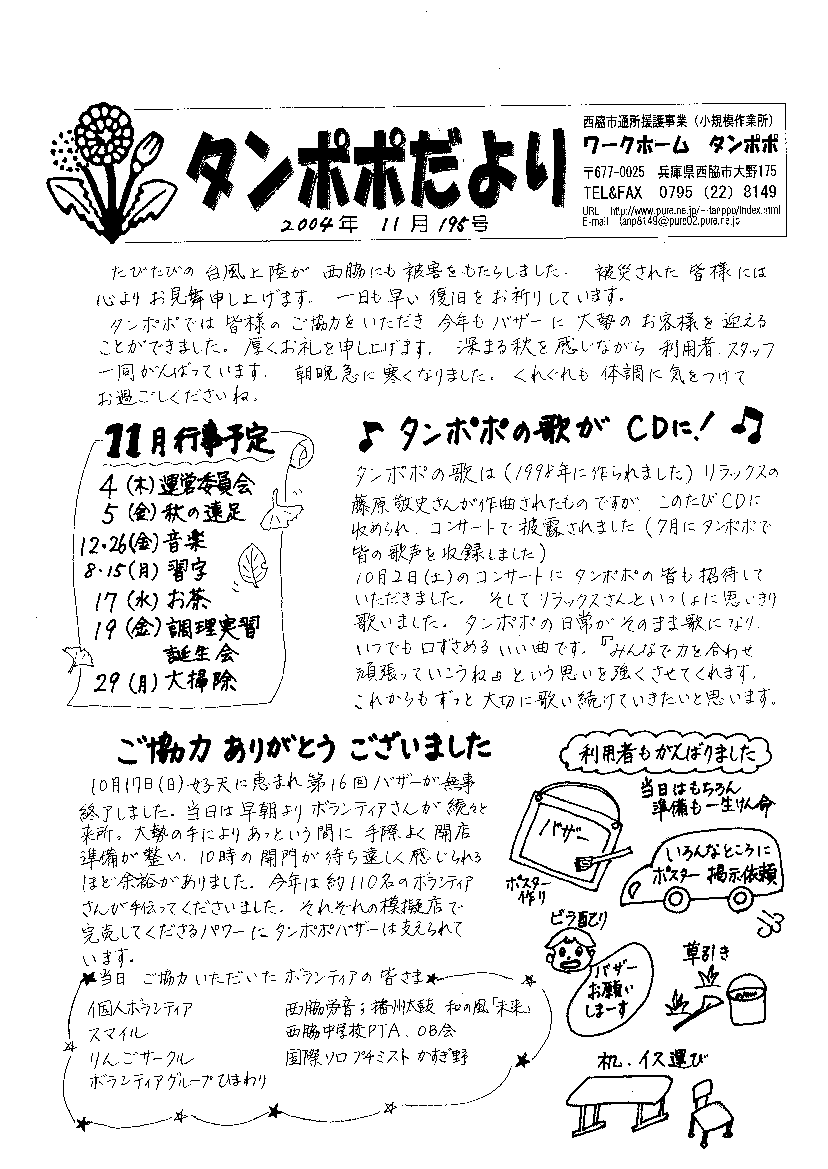 タンポポだより
2004年 11月 195号
西脇市通所援護事業（小規模作業所）
ワークホーム タンポポ
〒677-0025 兵庫県西脇市大野175
TEL&FAX 0795 (22) 8149
URL http://www.pure.ne.jp/~tanppu/index.html
E-mail tanp8149@pure02.pure.ne.jp
たびたびの 台風上陸が 西脇にも 被害をもたらしました。 被災された 皆様には
心より お見舞申し上げます。 一日も早い 復旧を お祈りしています。
タンポポでは 皆様の ご協力をいただき 今年も バザーに 大勢の お客様を 迎える
ことができました。厚くお礼を申し上げます。 深まる秋を感じながら 利用者、スタッフ
一同がんばっています。 朝晩急に寒くなりました。くれぐれも 体調に気をつけて
お過ごしくださいね。
11月行事予定
4（木）運営委員会
5（金）秋の遠足
12・26（金）音楽
8・15（月）習字
17（水）お茶
19（金）調理実習
誕生会
29（月）大掃除
♪ タンポポの歌が CDに! ♫
タンポポの歌は（1998年に作られました）リラックスの
藤原敬史さんが作曲されたものですが、このたびCDに
収められ、コンサートで披露されました（7月にタンポポで
皆の歌声を収録しました）
10月2日（土）のコンサートに タンポポの皆も招待して
いただきました。 そして リラックスさんといっしょに思いきり
歌いました。タンポポの日常がそのまま歌になり、
いつでも口ずさめるいい曲です。『みんなで力を合わせ
頑張っていこうね』という思いを強くさせてくれます。
これからもずっと大切に歌い続けていきたいと思います。
ご協力 ありがとう ございました
10月17日（日）好天に恵まれ第16回バザーが無事
終了しました。当日は早朝よりボランティアさんが続々と
来所。大勢の手によりあっという間に手際よく開店
準備が整い、10時の開門が待ち遠しく感じられる
ほど余裕がありました。今年は約110名のボランティア
さんが手伝ってくださいました。それぞれの模擬店で
完売してくださるパワーにタンポポバザーは支えられて
います。
★当日 ご協力いただいた ボランティアの皆さま★
個人ボランティア
スマイル
りんごサークル
ボランティアグループひまわり
西脇労音；播州太鼓 和の風「未来」
西脇中学校PTA、OB会
国際ソロプチミスト かすぎ野
利用者もがんばりました
当日はもちろん
準備も一生けん命
バザー
ポスター
作り
いろんなところに
ポスター掲示依頼
ビラ配り
バザー
お願い
しまーす
草引き
机、イス運び